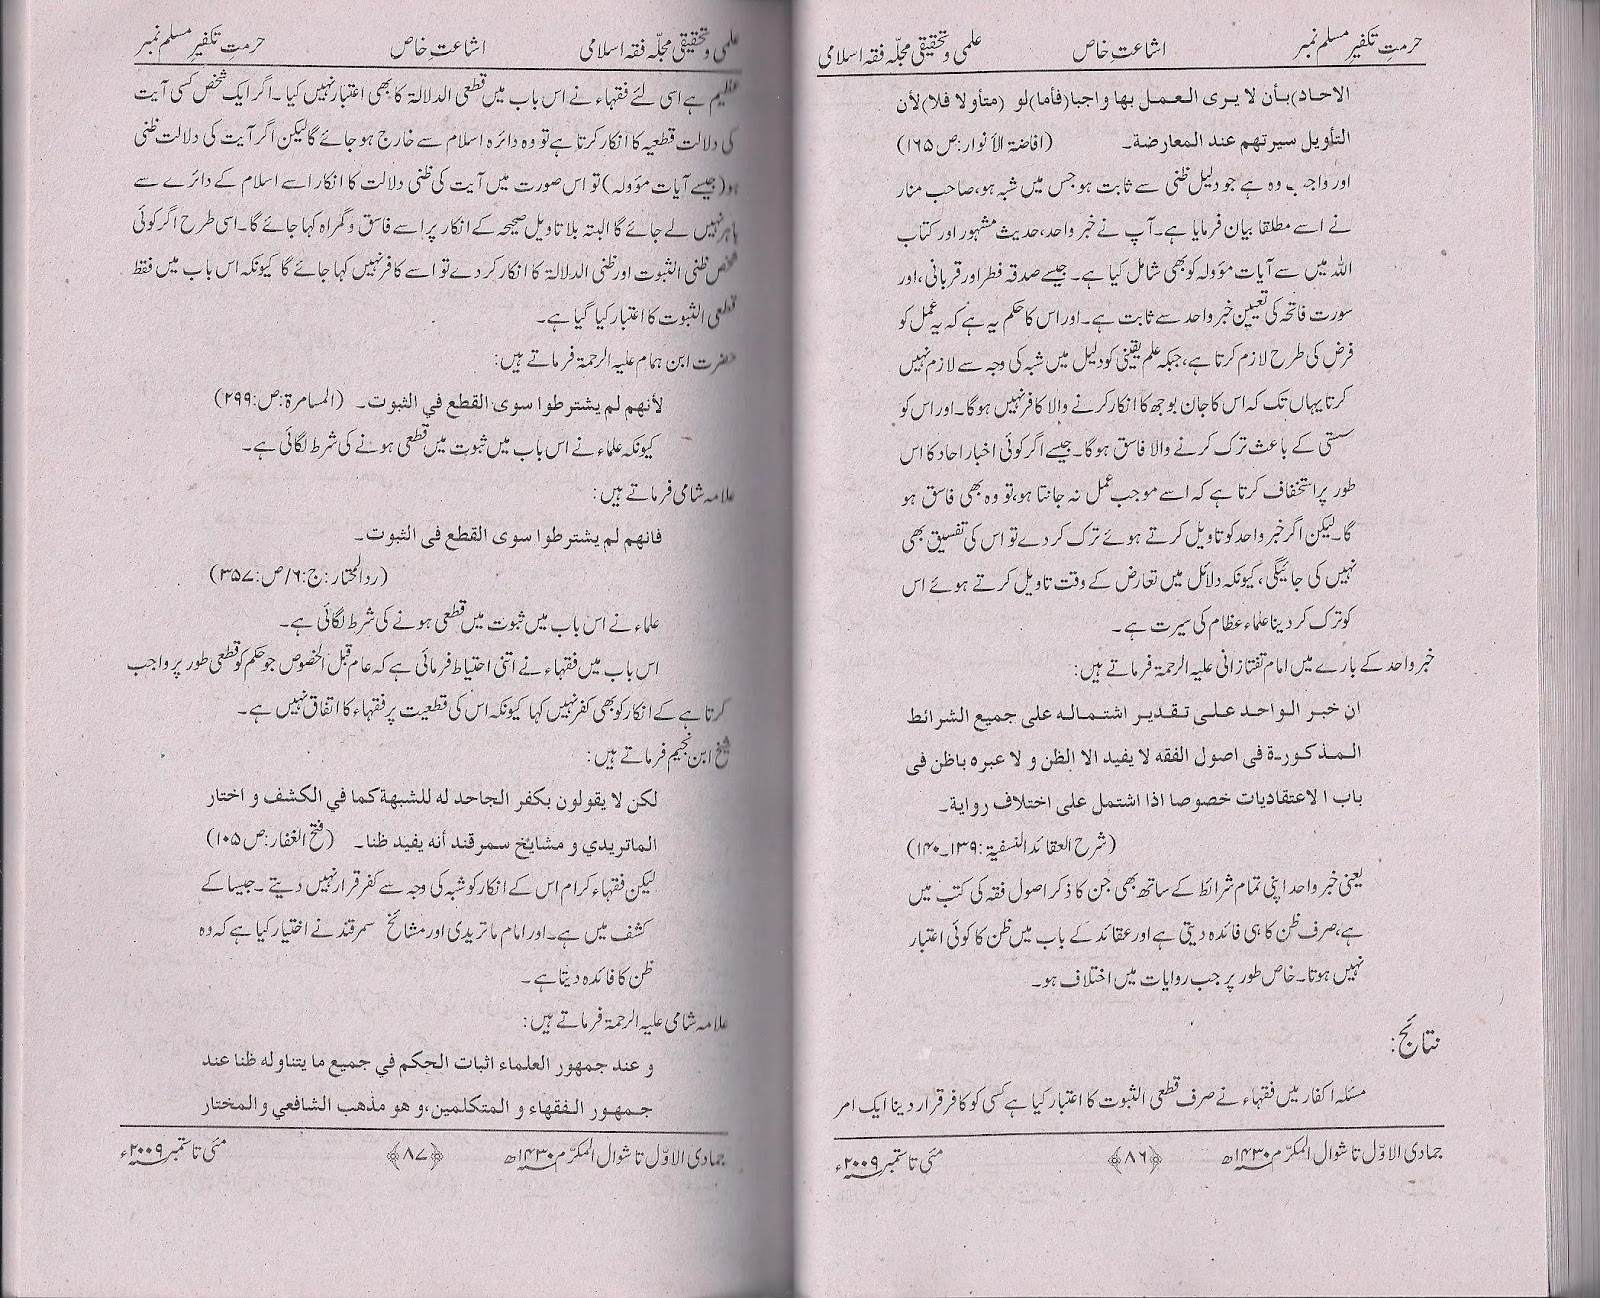 علمی و تحقیقی مجلّہ فقہ اسلامی اشاعتِ خاص حرمتِ تکفیر مسلم نمبر
الاحاد)بأن لا يرى العمل بها واجبا(فأما)لو (متأولا فلا)لأن
التأويل سيرتهم عند المعارضة۔ (افاضة الأنوار:ص۱۶۵)
اور واجب وہ ہے جو دلیل ظنی سے ثابت ہو جس میں شبہ ہو،صاحب منار
نے اسے مطلقا بیان فرمایا ہے۔آپ نے خبر واحد،حدیث مشہور اور کتاب
اللہ میں سے آیات مؤولہ کو بھی شامل کیا ہے۔ جیسے صدقہ فطر اور قربانی،اور
سورت فاتحہ کی تعیین خبر واحد سے ثابت ہے۔اور اس کا حکم یہ ہے کہ یہ عمل کو
فرض کی طرح لازم کرتا ہے،جبکہ علم یقینی کو دلیل میں شبہ کی وجہ سے لازم نہیں
کرتا یہاں تک کہ اس کا جان بوجھ کا انکار کرنے والا کافر نہیں ہوگا۔اور اس کو
سستی کے باعث ترک کرنے والا فاسق ہوگا۔جیسے اگر کوئی اخبار احاد کا اس
طور پر استخفاف کرتا ہے کہ اسے موجب عمل نہ جانتا ہو،تو وہ بھی فاسق ہو
گا۔لیکن اگر خبر واحد کو تاویل کرتے ہوئے ترک کر دے تو اس کی تفسیق بھی
نہیں کی جائیگی،کیونکہ دلائل میں تعارض کے وقت تاویل کرتے ہوئے اس
کو ترک کر دینا علماء عظام کی سیرت ہے۔
خبر واحد کے بارے میں امام تفتازانی علیہ الرحمۃ فرماتے ہیں:
ان خبر الواحد على تقدير اشتماله على جميع الشرائط
المذكورة فى اصول الفقه لا يفيد الا الظن و لا عبره باظن فى
باب الاعتقاديات خصوصا اذا اشتمل على اختلاف رواية۔
(شرح العقائد النسفیۃ:۱۳۹۔۱۴۰)
یعنی خبر واحد اپنی تمام شرائط کے ساتھ بھی جن کا ذکر اصول فقہ کی کتب میں
ہے،صرف ظن کا ہی فائدہ دیتی ہے اور عقائد کے باب میں ظن کا کوئی اعتبار
نہیں ہوتا۔خاص طور پر جب روایات میں اختلاف ہو۔
نتائج:
مسئلہ اکفار میں فقہاء نے صرف قطعی الثبوت کا اعتبار کیا ہے کسی کو کافر قرار دینا ایک امر
جمادی الاوّل تا شوال المکرّم ۱۴۳۰ھ ﴿۸۶﴾ مئی تا ستمبر ۲۰۰۹ء
علمی و تحقیقی مجلّہ فقہ اسلامی اشاعتِ خاص حرمتِ تکفیر مسلم نمبر
عظیم ہے اسی لئے فقہاء نے اس باب میں قطعی الدلالۃ کا بھی اعتبار نہیں کیا ۔اگر ایک شخص کسی آیت
کی دلالت قطعیہ کا انکار کرتا ہے تو وہ دائرہ اسلام سے خارج ہو جائے گا لیکن اگر آیت کی دلالت ظنی
ہو(جیسے آیات مؤولہ)تو اس صورت میں آیت کی ظنی دلالت کا انکار اسے اسلام کے دائرے سے
باہر نہیں لے جائے گا البتہ بلا تاویل صحیحہ کے انکار پر اسے فاسق و گمراہ کہا جائے گا۔اسی طرح اگر کوئی
شخص ظنی الثبوت اور ظنی الدلالۃ کا انکار کر دے تو اسے کافر نہیں کہا جائے گا کیونکہ اس باب میں فقط
قطعی الثبوت کا اعتبار کیا گیا ہے۔
حضرت ابن ہمام علیہ الرحمۃ فرماتے ہیں:
لأنهم لم يشترطوا سوى القطع في الثبوت۔ (المسامرة:ص:۲۹۹)
کیونکہ علماء نے اس باب میں ثبوت میں قطعی ہونے کی شرط لگائی ہے۔
علامہ شامی فرماتے ہیں:
فانهم لم يشترطوا سوى القطع فى الثبوت۔
(ردالمختار:ج:۶/ص:۳۵۷)
علماء نے اس باب میں ثبوت میں قطعی ہونے کی شرط لگائی ہے۔
اس باب میں فقہاء نے اتنی احتیاط فرمائی ہے کہ عام قبل الخصوص جو حکم کو قطعی طور پر واجب
کرتا ہے کے انکار کو بھی کفر نہیں کہا کیونکہ اس کی قطعیت پر فقہاء کا اتفاق نہیں ہے۔
شیخ ابن نجیم فرماتے ہیں:
لكن لا يقولون بكفر الجاحد له للشبهة كما في الكشف و اختار
الماتريدي و مشايخ سمرقند أنه يفيد ظنا۔ (فتح الغفار:ص۱۰۵)
لیکن فقہاء کرام اس کے انکار کو شبہ کی وجہ سے کفر قرار نہیں دیتے ۔جیسا کے
کشف میں ہے۔اور امام ماتریدی اور مشائخ سمرقند نے اختیار کیا ہے کہ وہ
ظن کا فائدہ دیتا ہے۔
علامہ شامی علیہ الرحمۃ فرماتے ہیں:
و عند جمهور العلماء اثبات الحكم في جميع ما يتناوله ظنا عند
جمهور الفقهاء و المتكلمين،و هو مذهب الشافعي و المختار
جمادی الاوّل تا شوال المکرّم ۱۴۳۰ھ ﴿۸۷﴾ مئی تا ستمبر ۲۰۰۹ء